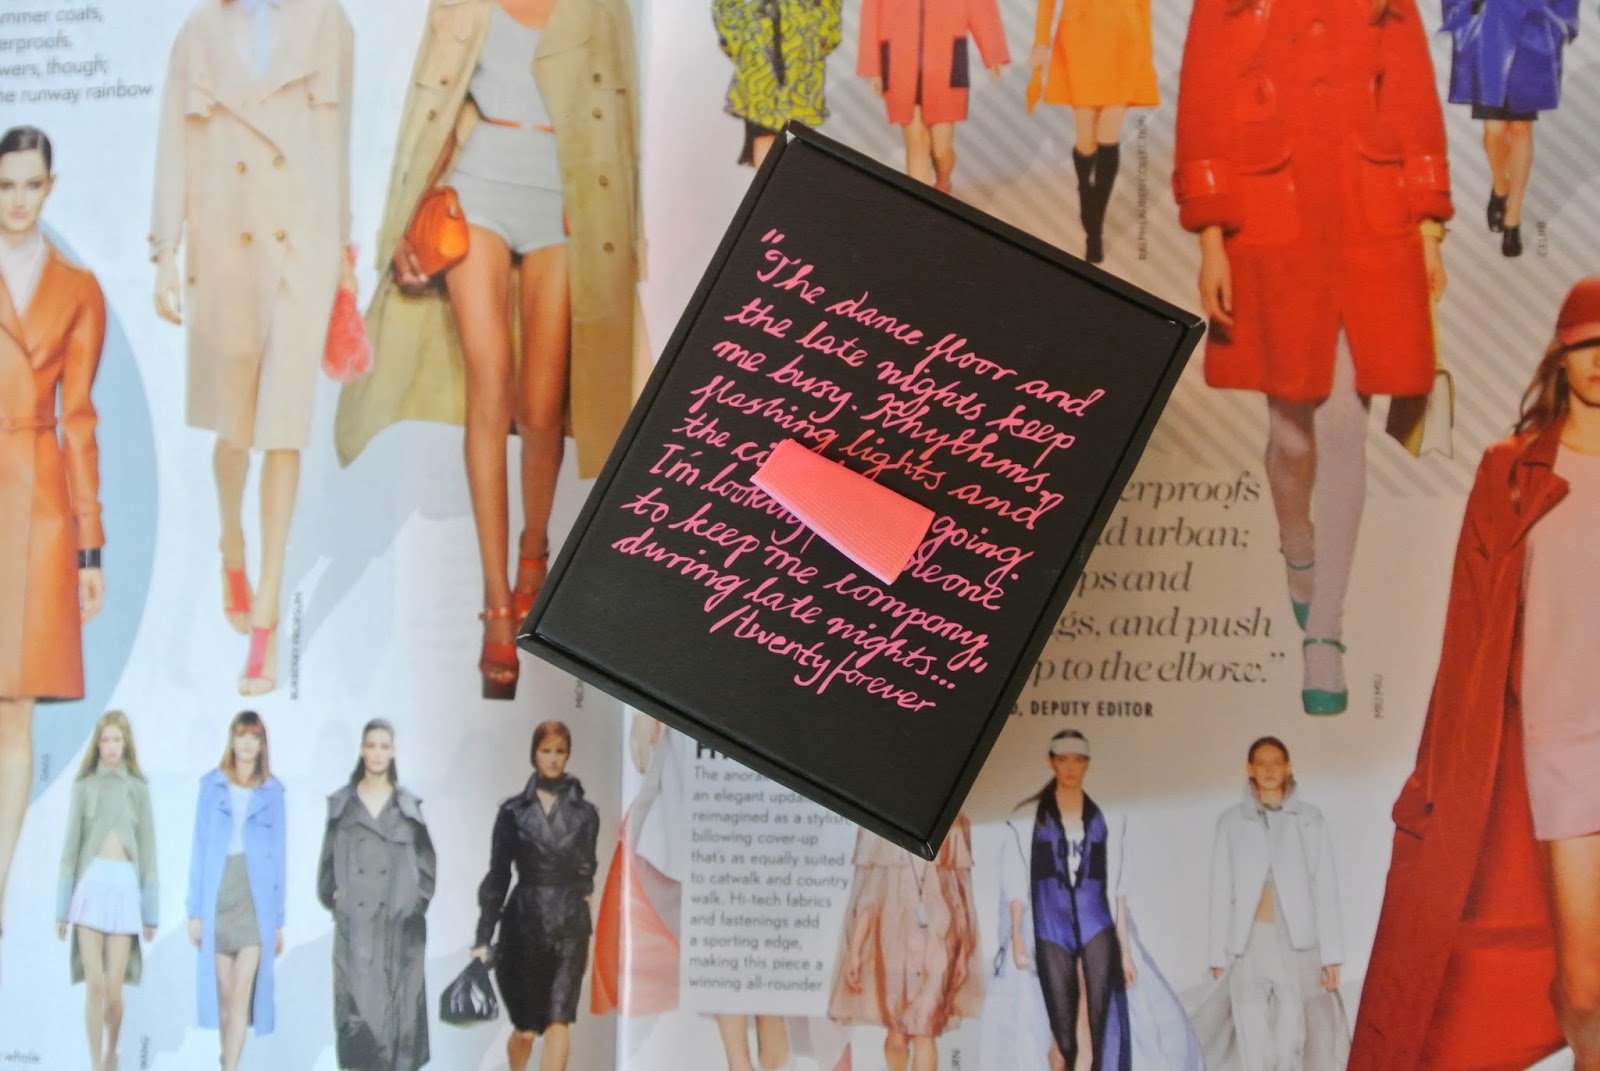 mmer coats,
erproofs,
wers, though;
he runway rainbow
"The dance floor and
the late nights keep
me busy. Rhythms,
flashing lights and
the ci going.
I'm looking eone
to keep me company
during late nights..."
/twentyforever
erproofs
d urban;
ps and
gs, and push
p to the elbow."
, DEPUTY EDITOR
The anora
an elegant upda
reimagined as a stylish,
billowing cover-up
that's as equally suited
to catwalk and country
walk. Hi-tech fabrics
and fastenings add
a sporting edge,
making this piece a
winning all-rounder
BURBERRY PRORSUM
RALPH LAUREN COLLECTION
CELINE
MIU MIU
whole-